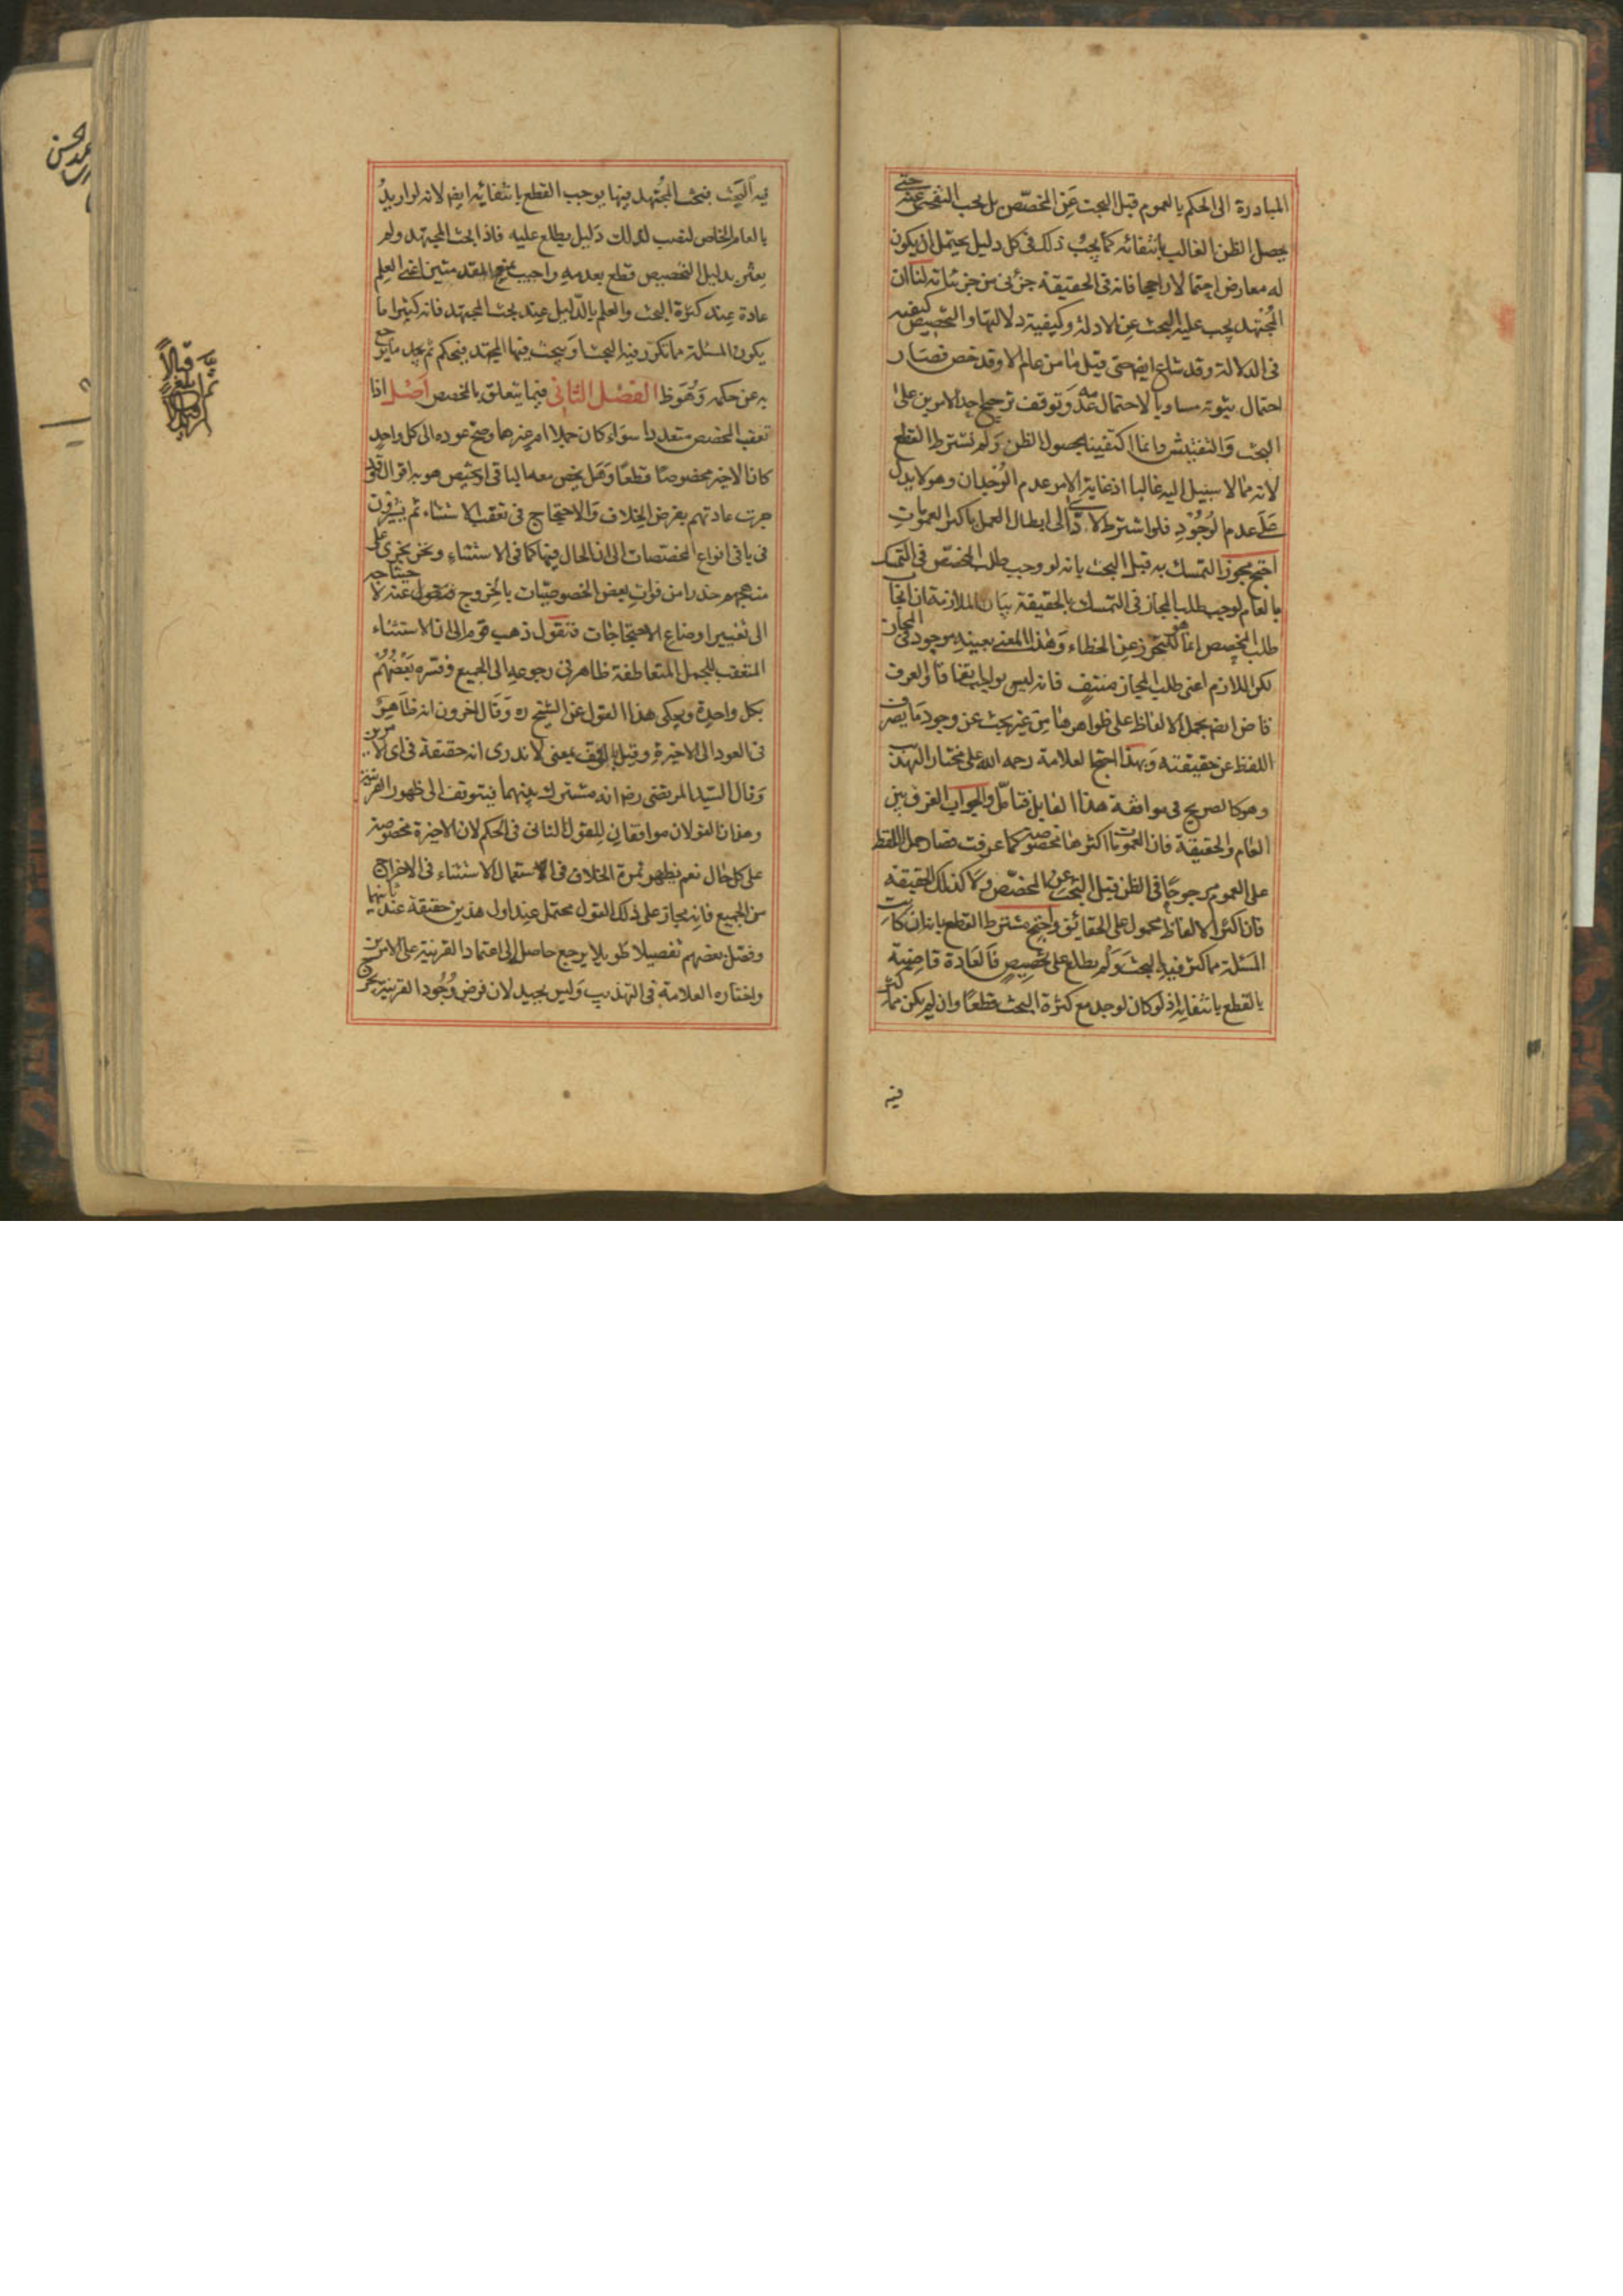 المبادرة الى الحكم بالعموم قبل البحث عن المخصّص بل يجب التفحص عنه حتى
يحصل الظن الغالب بانتفائه كما يجب ذلك فى كل دليل يحتمل ان يكون
له معارض احتمالا راجحا فانه فى الحقيقة جزئى من جزئياته لنا ان
المجتهد يجب عليه البحث عن الادلة وكيفية دلالتها والتخصيص كيفية
فى الدلالة وقد شاع ايضا حتى قيل ما من عام الا وقد خص فصار
احتمال ثبوته مساويا لاحتمال عدمه وتوقف ترجيح احد الامرين على
البحث والتفتيش وانما اكتفينا بحصول الظن ولم نشترط القطع
لانه مما لا سبيل اليه غالبا اذ غاية الامر عدم الوجدان وهو لا يدل
على عدم الوجود فلو اشترط لادّى الى ابطال العمل باكثر العمومات
احتج مجوز التمسك به قبل البحث بانه لو وجب طلب المخصّص فى التمسك
بالعام لوجب طلب المجاز فى التمسك بالحقيقة بيان الملازمة ان ايجاب
طلب المخصص انما هو للتحرز عن الخطاء وهذا المعنى بعينه موجود فى المجاز
لكن اللازم اعنى طلب المجاز منتف فانه ليس بواجب اتفاقا والعرف
قاض ايضا بحمل الالفاظ على ظواهرها من غير بحث عن وجود ما يصرف
اللفظ عن حقيقته وبهذا احتج العلامة رحمه الله على مختار التهذيب
وهو كالصريح فى موافقة هذا القايل فتامّل والجواب الفرق بين
العام والحقيقة فان العمومات اكثرها مخصوصة كما عرفت فصار حمل اللفظ
على العموم مرجوحًا فى الظن قبل البحث عن المخصّص ولا كذلك الحقيقة
فان اكثر الالفاظ محمول على الحقائق واحتج مشترط القطع بانه ان كانت
المسئلة مما كثر فيه البحث ولم يطلع على تخصيص فالعادة قاضية
بالقطع بانتفائه اذ لو كان لوجد مع كثرة البحث قطعا وان لم يكن مما كثر
فيه
فيه البحث فبحث المجتهد فيها يوجب القطع بانتفائه ايضا لانه لو اريد
بالعام الخاص لنصب لذلك دليل يطلع عليه فاذا بحث المجتهد ولم
يعثر بدليل التخصيص قطع بعدمه واجيب بمنع المقدمتين اعنى العلم
عادة عند كثرة البحث والعلم بالدّليل عند بحث المجتهد فانه كثيرا ما
يكون المسئلة مما تكرر فيه البحث او يبحث فيها المجتهد فيحكم ثم يجد ما يرجع
به عن حكمه وهو ظ الفصل الثانى فيما يتعلق بالمخصص اصل اذا
تعقب المخصص متعددا سواء كان جملا ام غيرها وصح عوده الى كل واحد
كان الاخير مخصوصًا قطعًا وهل يخص معه الباقى او يختص هو به اقوال وقد
جرت عادتهم بفرض الخلاف والاحتجاج فى تعقب الاستثناء ثم يشيرون
فى باقى انواع المخصّصات الى ان الحال فيها كما فى الاستثناء ونحن نجرى على
منهجهم حذرا من فوات بعض الخصوصيّات بالخروج عنه لاحتياجه
الى تغيير اوضاع الاحتجاجات فنقول ذهب قوم الى ان الاستثناء
المتعقب للجمل المتعاطفة ظاهر فى رجوعه الى الجميع وفسره بعضهم
بكل واحدة ويحكى هذا القول عن الشيخ ره وقال اخرون انه ظاهر
فى العود الى الاخيرة وقيل بالوقف بمعنى لا ندرى انه حقيقة فى اى الامرين
وقال السّيد المرتضى رضه انه مشترك بينهما فيتوقف الى ظهور القرينة
وهذان القولان موافقان للقول الثانى فى الحكم لان الاخيرة مخصوصة
على كل حال نعم يظهر ثمرة الخلاف فى الاستعمال الاستثناء فى الاخراج
من الجميع فانه مجاز على ذلك القول محتمل عند اول هذين حقيقة عند ثانيهما
وفصّل بعضهم تفصيلا طويلا يرجع حاصله الى اعتماد القرينة على الامرين
واختاره العلامة فى التهذيب وليس بجيد لان فرض وجود القرينة يخرج